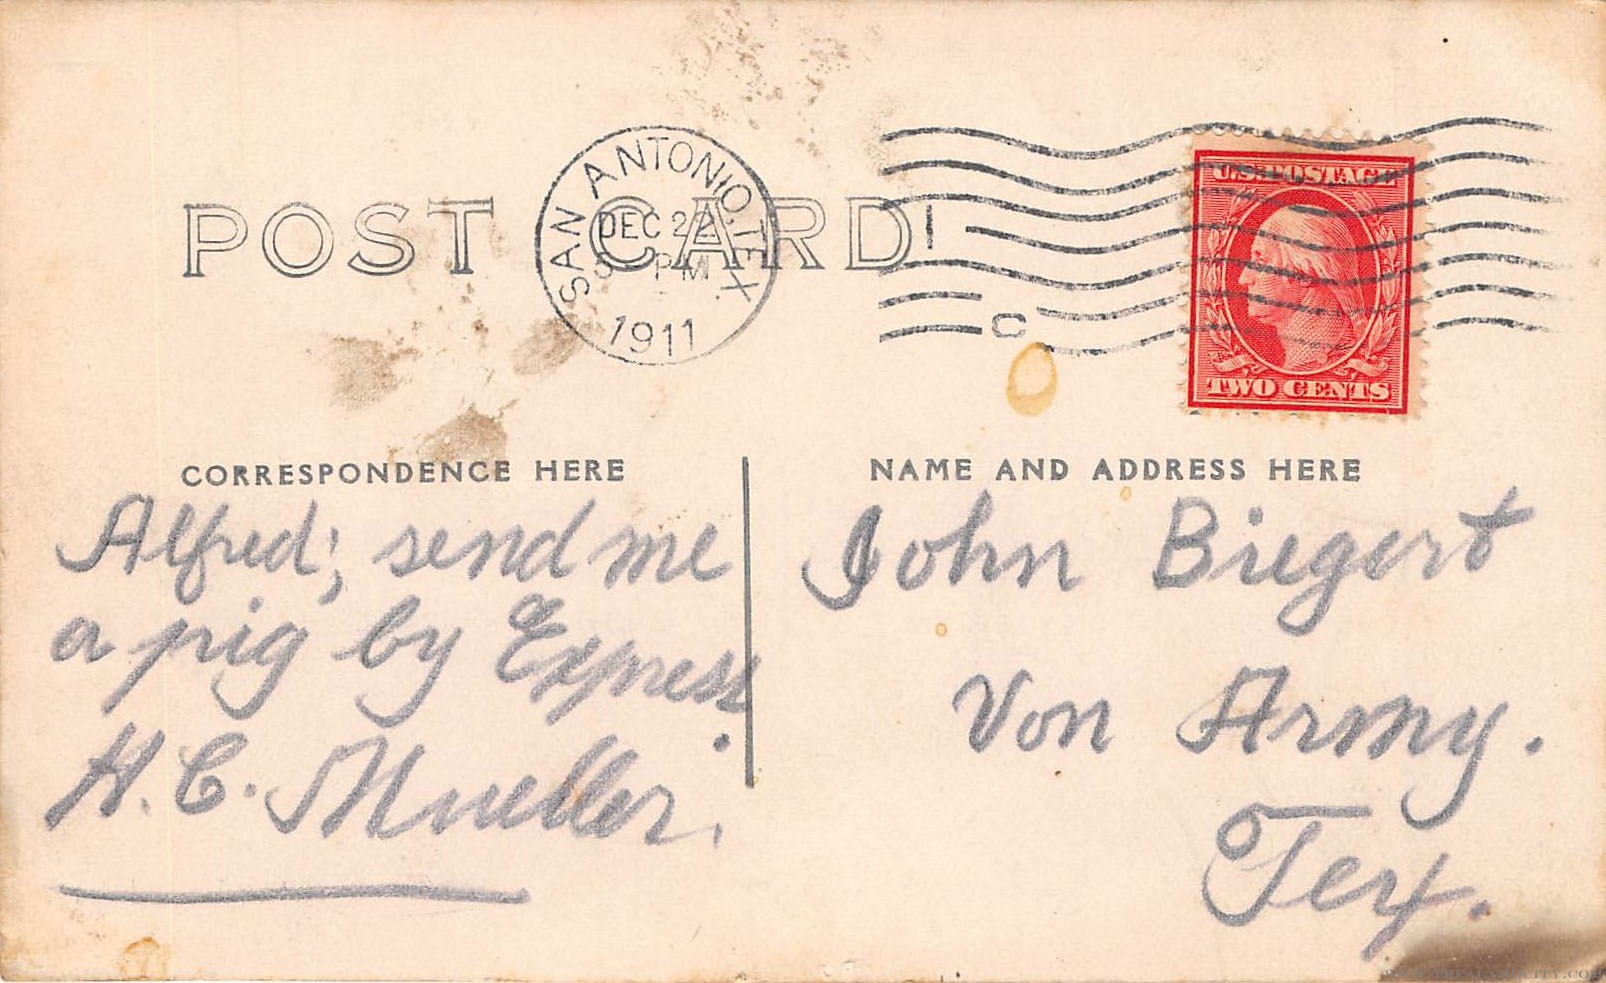 POST CARD
SAN ANTONIO, TEX.
DEC 22
PM
1911
C
U.S. POSTAGE
TWO CENTS
CORRESPONDENCE HERE
Alfred; send me
a pig by Express.
H. C. Mueller.
NAME AND ADDRESS HERE
John Biegert
Von Army.
Tex.